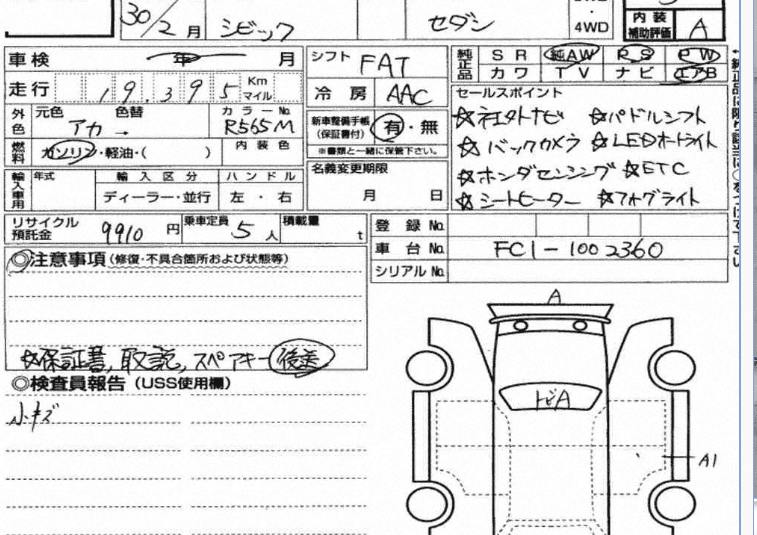 30/2月 シビック セダン 4WD 内装 補助評価 A
車検 年 月 シフト FAT 純正品 SR 純AW PS PW
カワ TV ナビ エアB
走行 19,395 Km マイル 冷房 AAC セールスポイント
外色 元色 色替 カラーNo. 新車整備手帳 (保証書付) 有・無 ☆社外ナビ ☆パドルシフト
アカ → R565M ※書類と一緒に保管下さい。 ☆バックカメラ ☆LEDオートライト
燃料 ガソリン・軽油・( ) 内装色 名義変更期限 ☆ホンダセンシング ☆ETC
輸入車用 年式 輸入区分 ハンドル 月 日 ☆シートヒーター ☆フォグライト
ディーラー・並行 左・右
リサイクル預託金 9910円 乗車定員 5人 積載量 t 登録No.
車台No. FC1-1002360
◎注意事項 (修復・不具合箇所および状態等) シリアルNo.
A
☆保証書,取説,スペアキー後送
◎検査員報告 (USS使用欄)
小キズ
トビA
A1